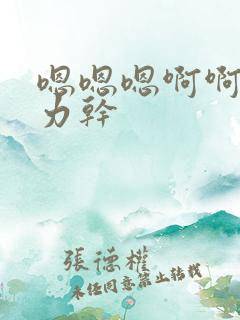 嗯嗯嗯啊啊
力幹
張德權
未经同意禁止转载